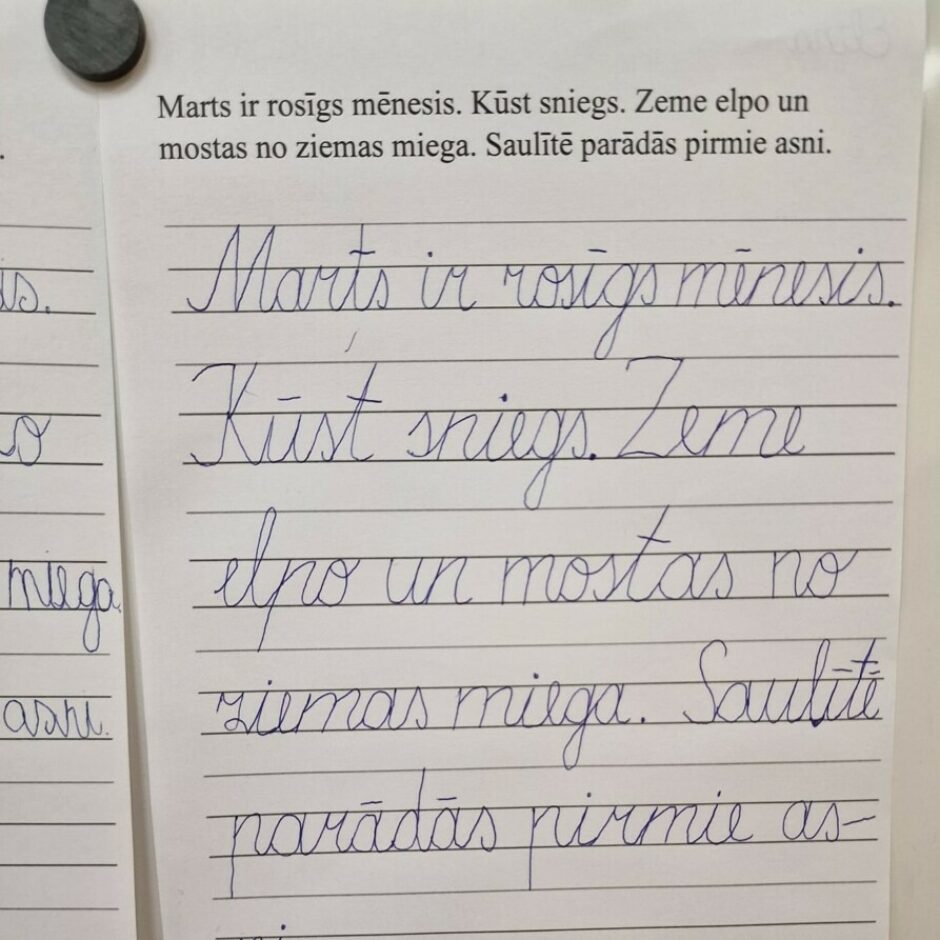 Marts ir rosīgs mēnesis. Kūst sniegs. Zeme elpo un
mostas no ziemas miega. Saulītē parādās pirmie asni.
Marts ir rosīgs mēnesis.
Kūst sniegs. Zeme
elpo un mostas no
ziemas miega. Saulītē
parādās pirmie as-
is.
o
miega.
asni.